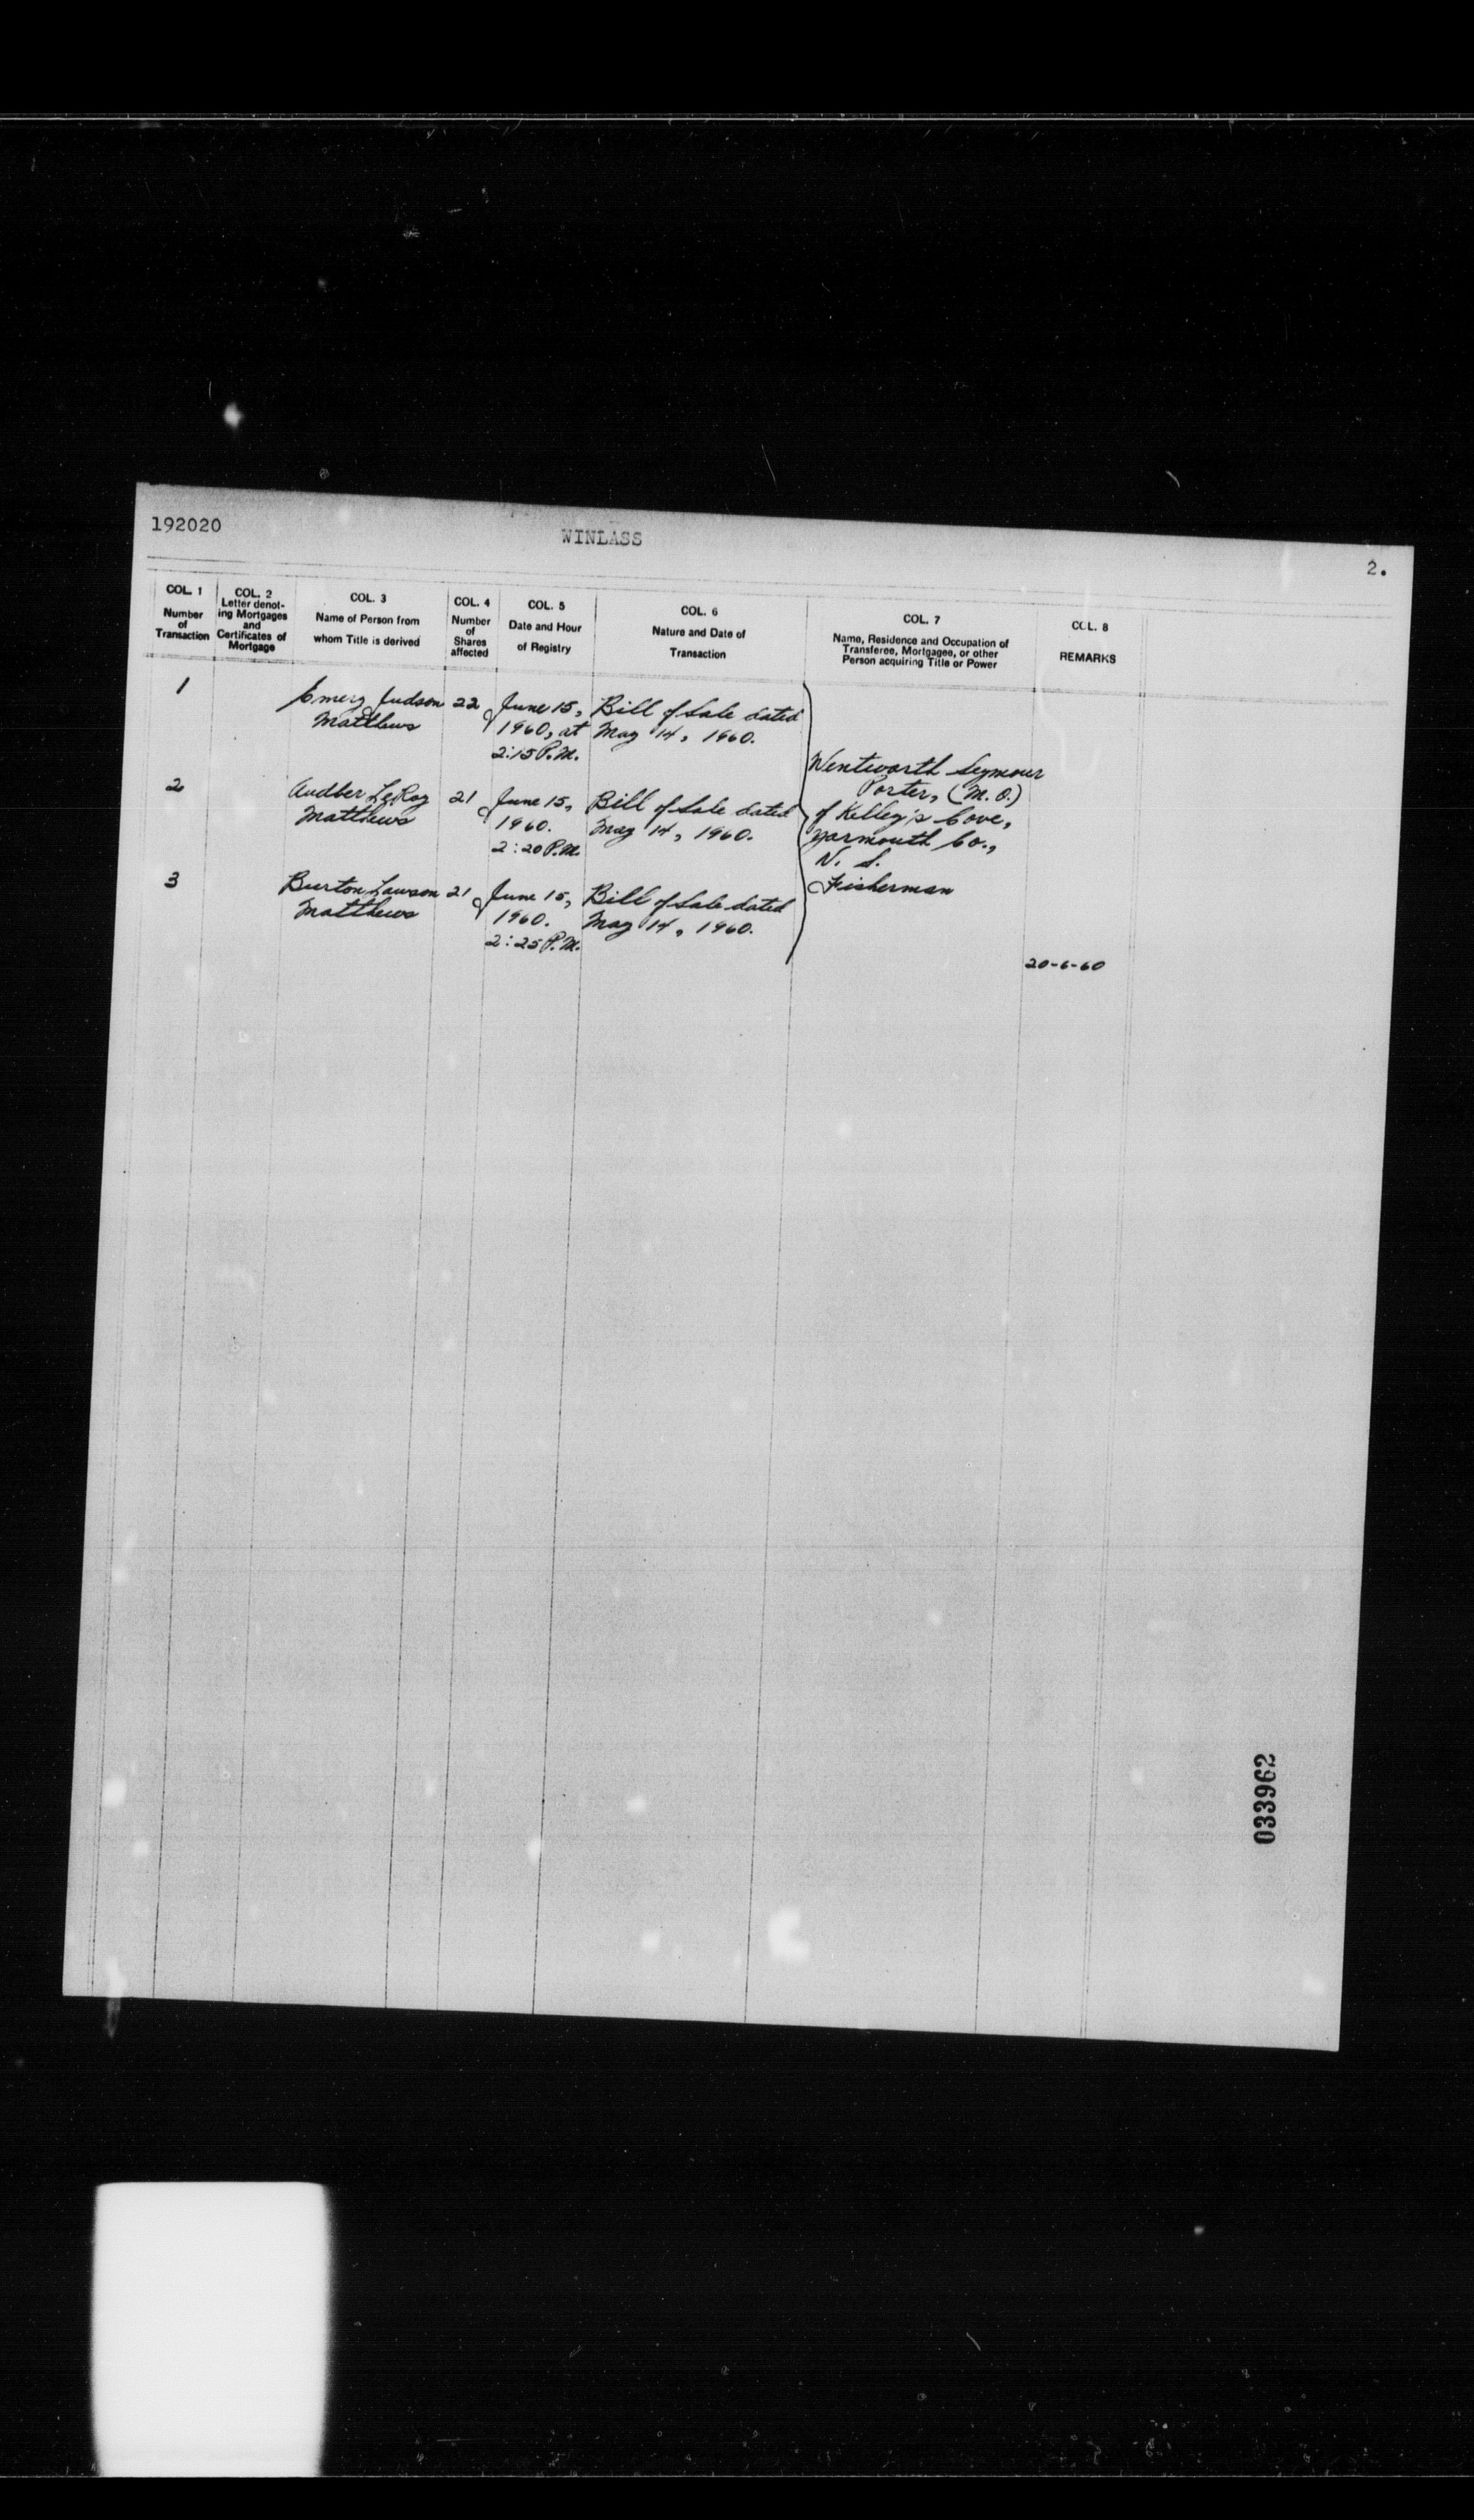 192020
WINLASS
2.
COL. 1
Number
of
Transaction
COL. 2
Letter denot-
ing Mortgages
and
Certificates of
Mortgage
COL. 3
Name of Person from
whom Title is derived
COL. 4
Number
of
Shares
affected
COL. 5
Date and Hour
of Registry
COL. 6
Nature and Date of
Transaction
COL. 7
Name, Residence and Occupation of
Transferee, Mortgagee, or other
Person acquiring Title or Power
COL. 8
REMARKS
1
Emery Judson
Matthews
22
June 15,
1960, at
2:15 P.M.
Bill of Sale dated
May 14, 1960.
2
LeRoy
Matthews
21
June 15,
1960.
2:20 P.M.
Bill of Sale dated
May 14, 1960.
3
Burton Lawson
Matthews
21
June 15,
1960.
2:25 P.M.
Bill of Sale dated
May 14, 1960.
Wentworth Seymour
Porter, (M.O.)
of Kelley's Cove,
Yarmouth Co.,
N. S.
Fisherman
20-6-60
033962